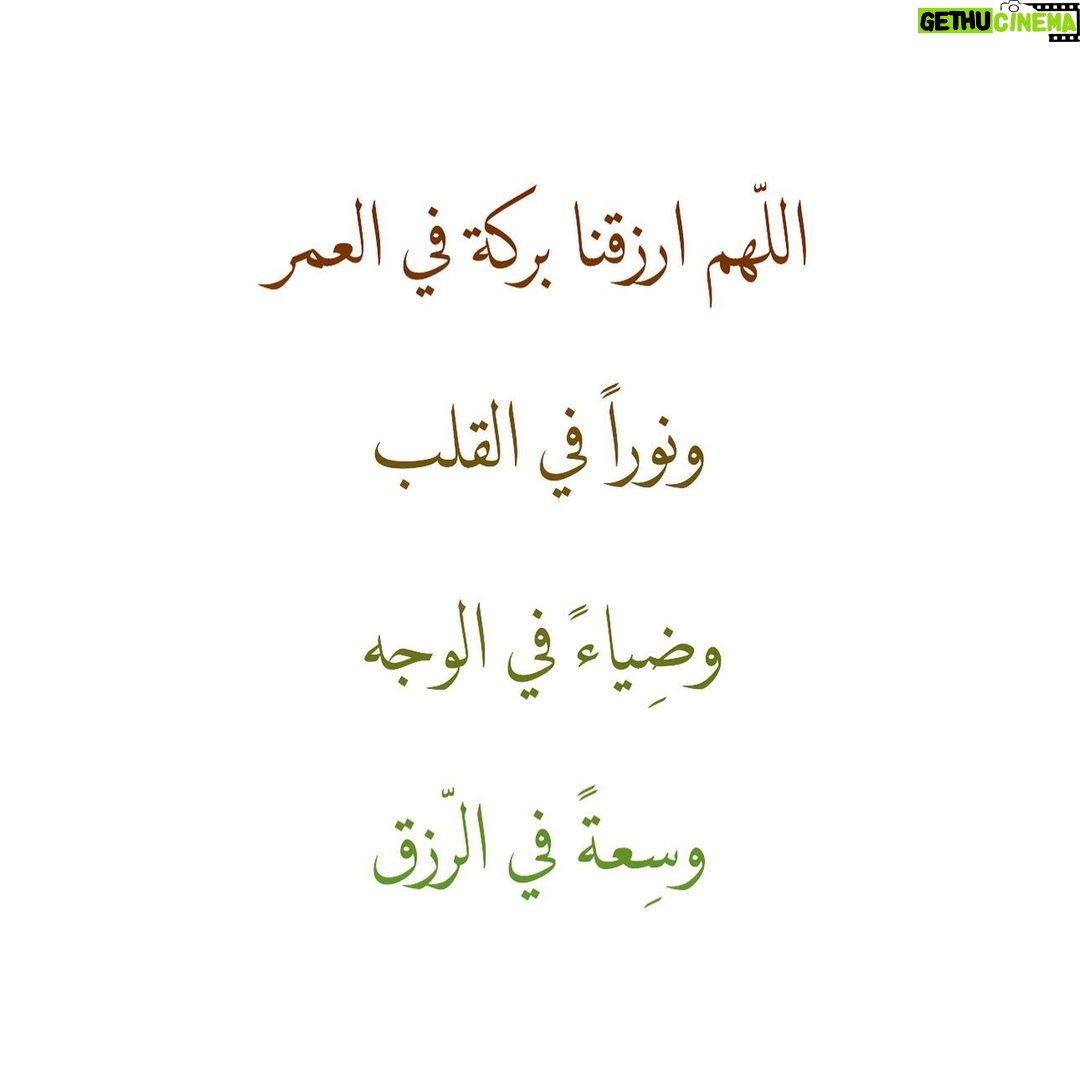 GETHUCINEMA
اللّهم ارزقنا بركة في العمر
ونوراً في القلب
وضِياءً في الوجه
وسِعةً في الرّزق